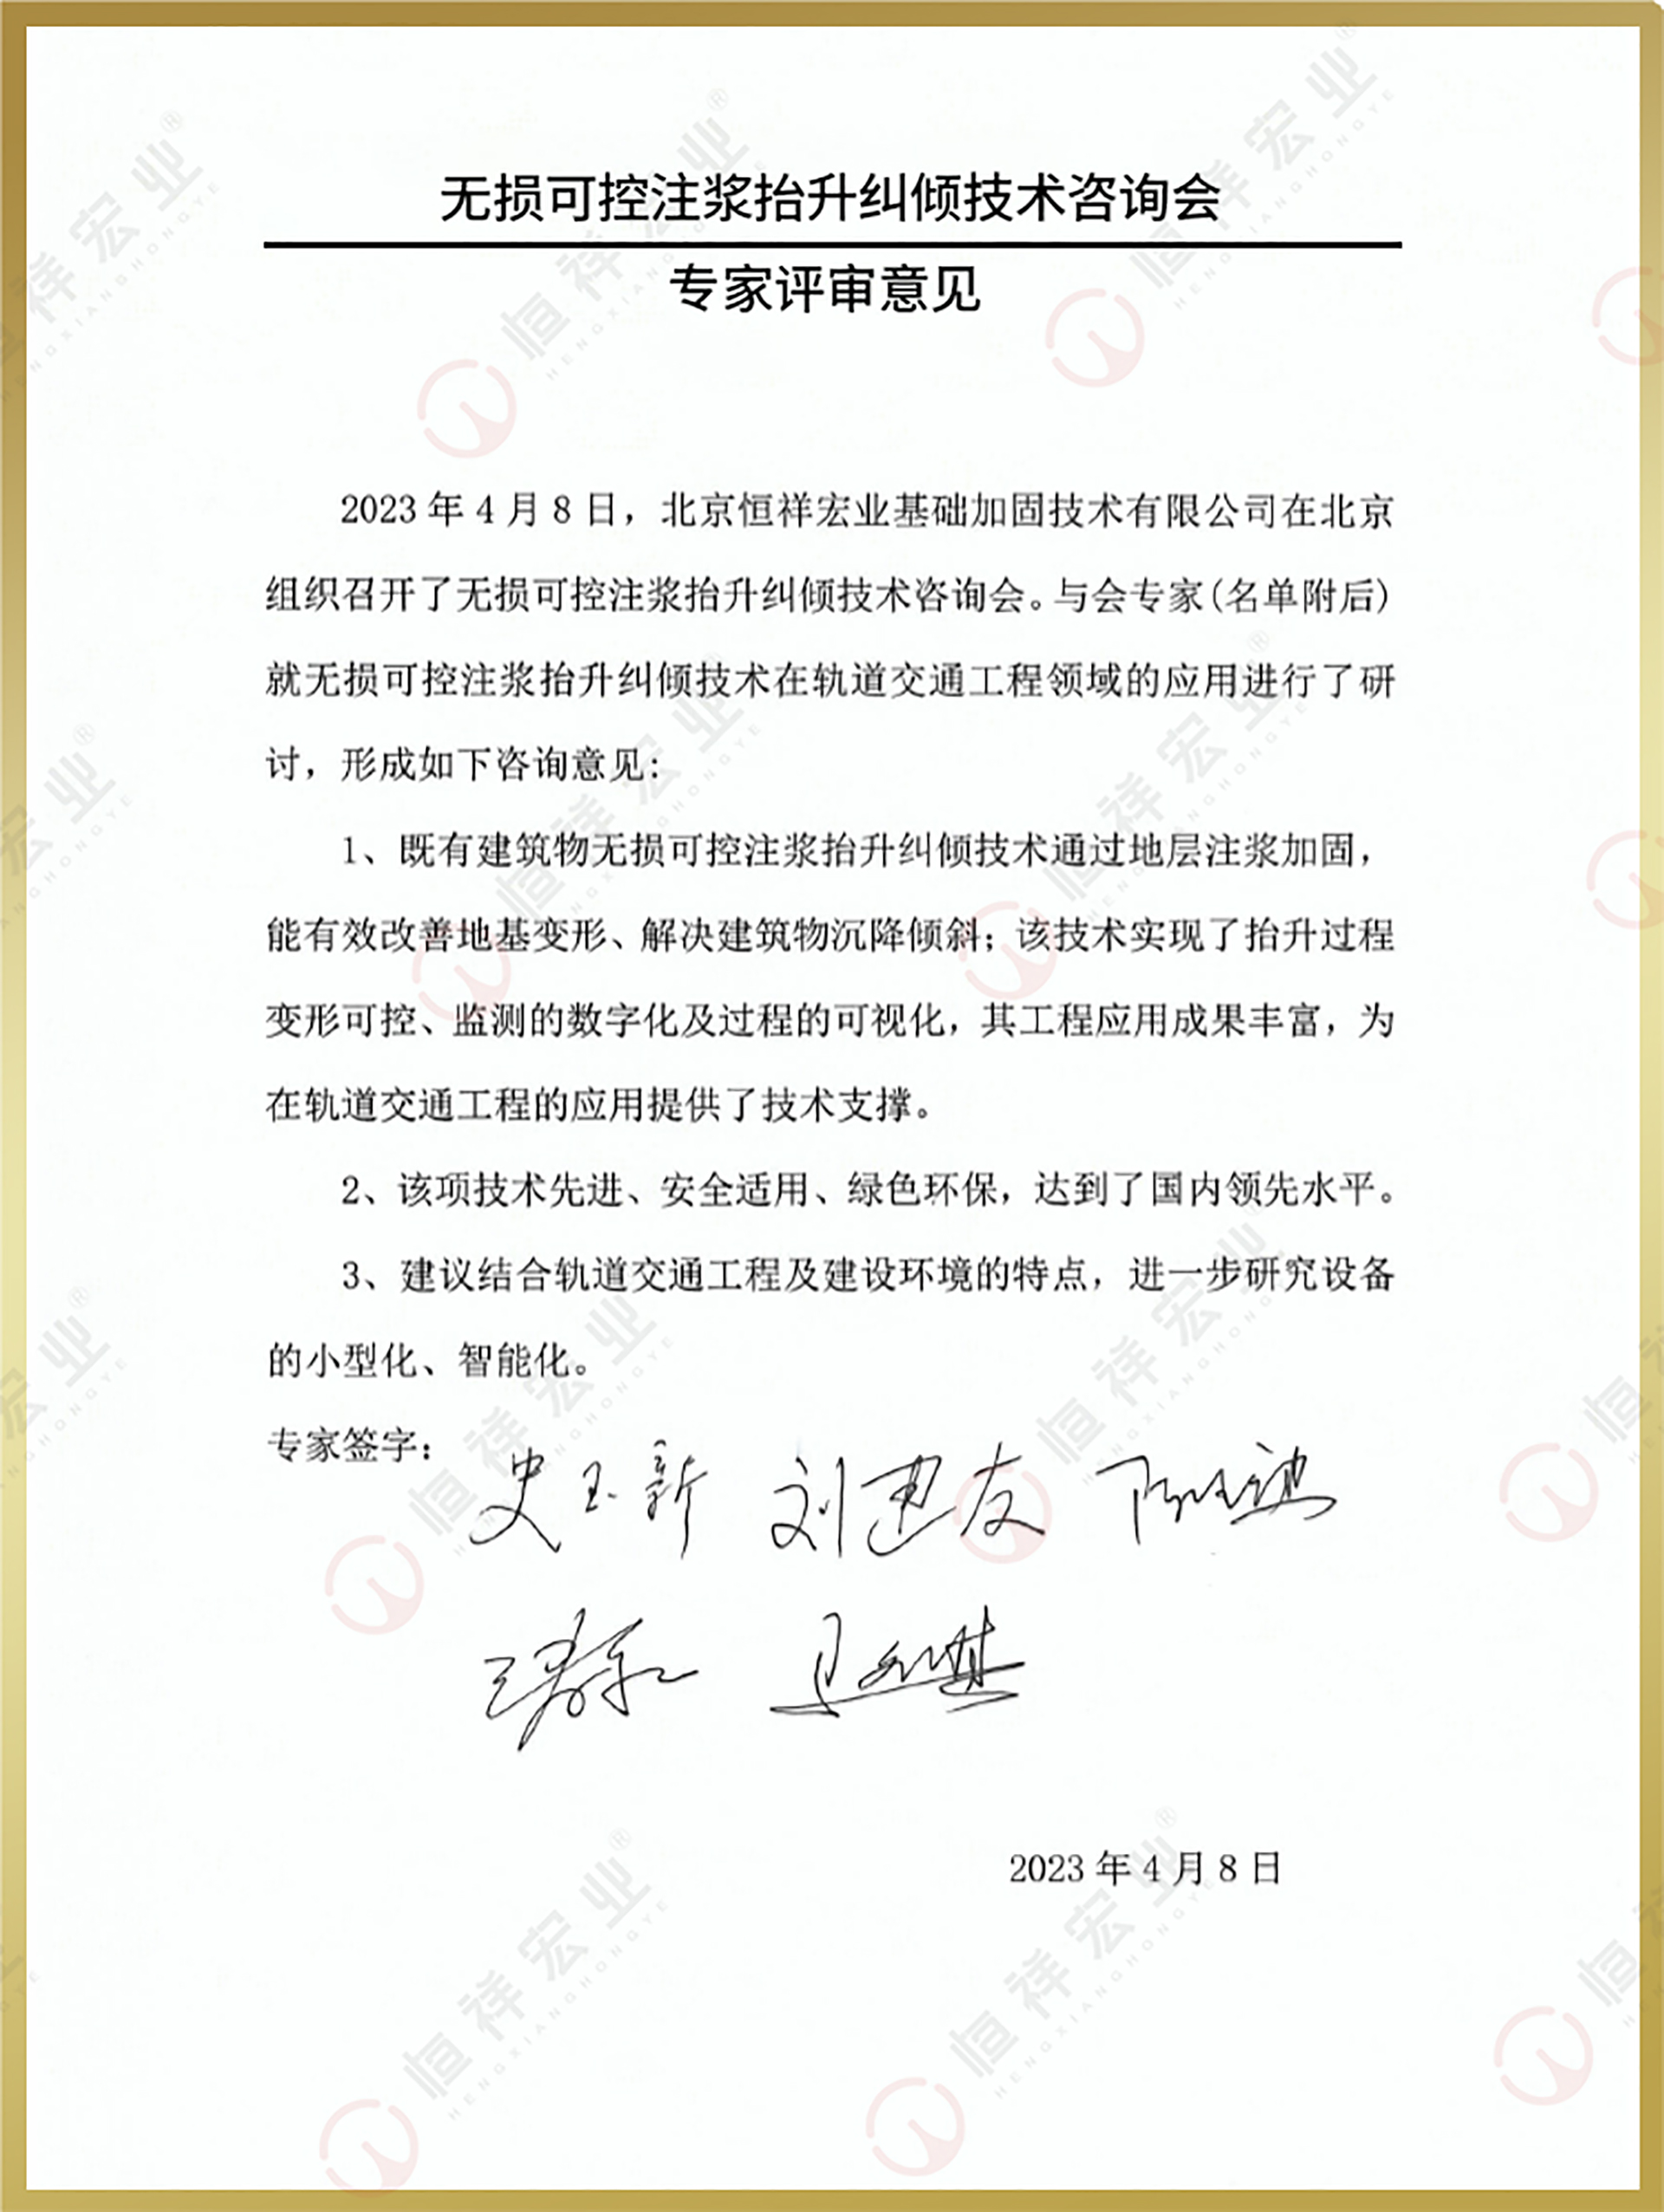 无损可控注浆抬升纠倾技术咨询会
专家评审意见
2023年4月8日，北京恒祥宏业基础加固技术有限公司在北京
组织召开了无损可控注浆抬升纠倾技术咨询会。与会专家(名单附后)
就无损可控注浆抬升纠倾技术在轨道交通工程领域的应用进行了研
讨，形成如下咨询意见:
1、既有建筑物无损可控注浆抬升纠倾技术通过地层注浆加固，
能有效改善地基变形、解决建筑物沉降倾斜；该技术实现了抬升过程
变形可控、监测的数字化及过程的可视化，其工程应用成果丰富，为
在轨道交通工程的应用提供了技术支撑。
2、该项技术先进、安全适用、绿色环保，达到了国内领先水平。
3、建议结合轨道交通工程及建设环境的特点，进一步研究设备
的小型化、智能化。
专家签字：
史玉新 刘建友
2023年4月8日
恒祥宏业®
HENGXIANGHONGYE